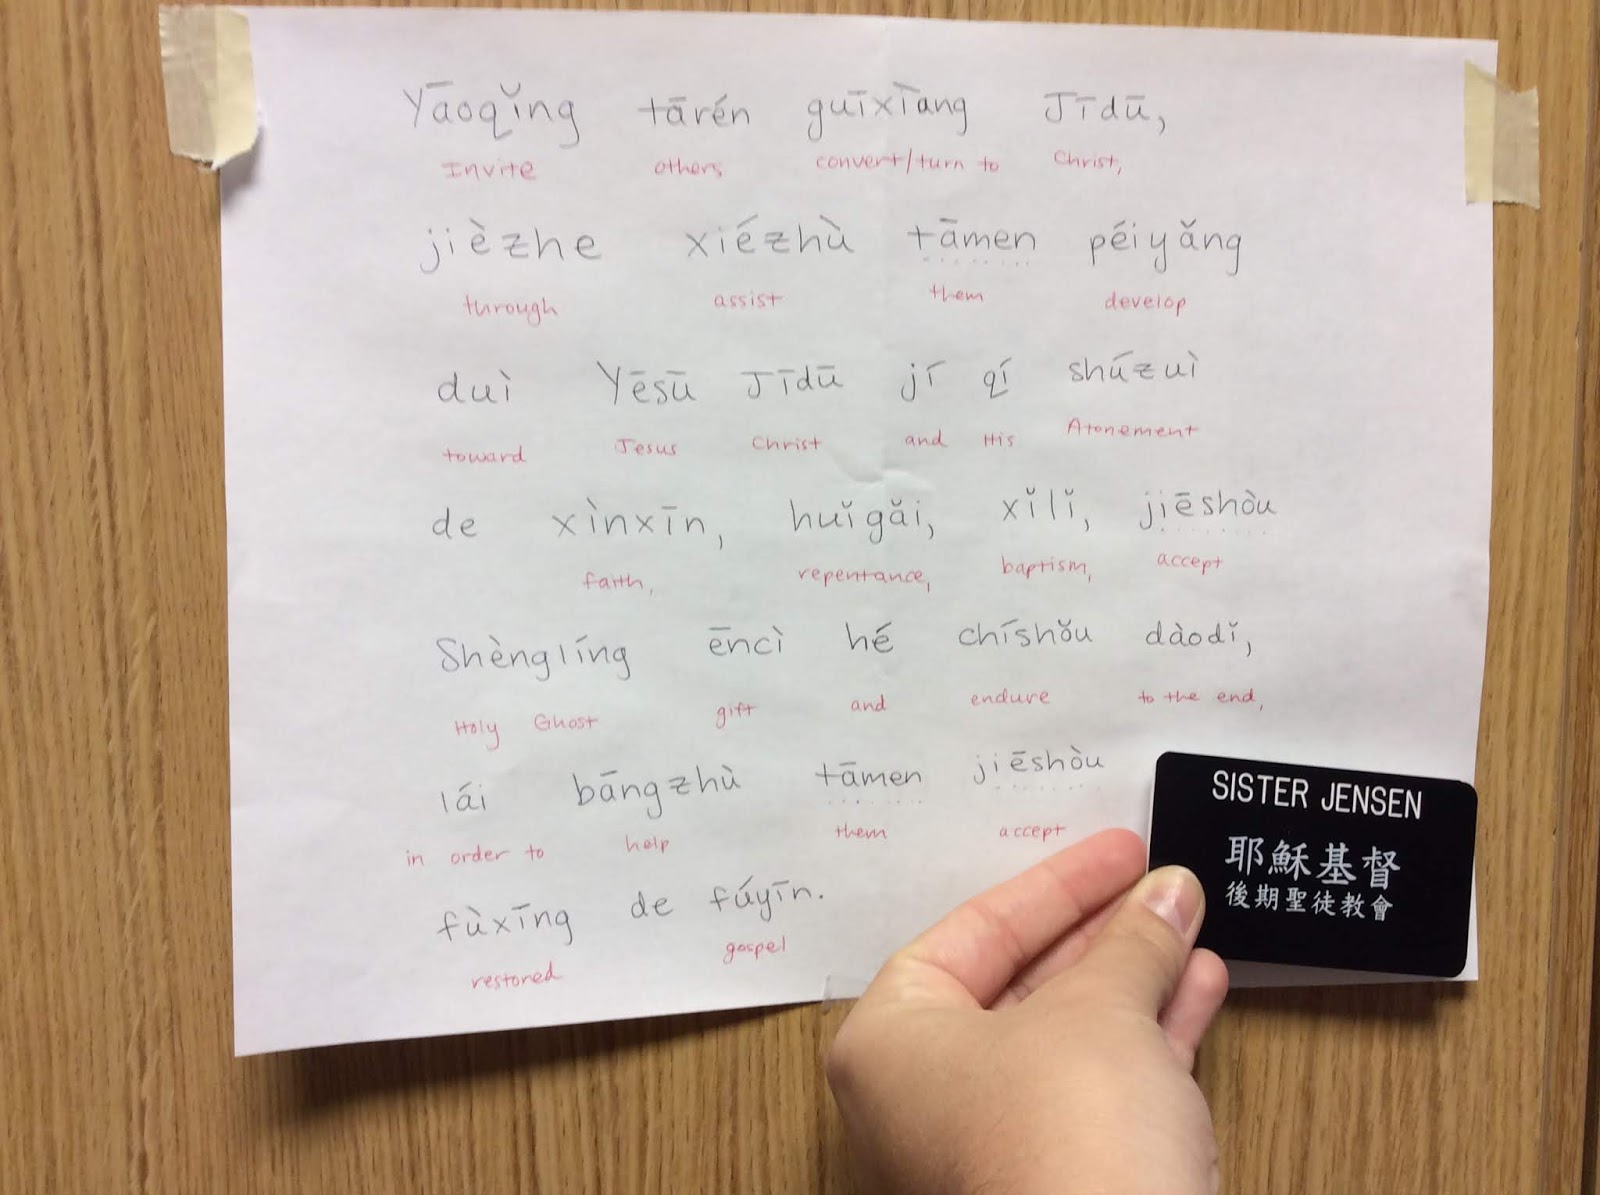 Yāoqǐng tārén guīxìang Jīdū,
Invite others convert/turn to Christ,
jièzhe xiézhù tāmen péiyǎng
through assist them develop
duì Yēsū Jīdū jí qí shúzuì
toward Jesus Christ and His Atonement
de xìnxīn, huǐgǎi, xǐlǐ, jiēshòu
faith, repentance, baptism, accept
Shènglíng ēncì hé chíshǒu dàodǐ,
Holy Ghost gift and endure to the end,
lái bāngzhù tāmen jiēshòu
in order to help them accept
fùxīng de fúyīn.
restored gospel
SISTER JENSEN
耶穌基督
後期聖徒教會